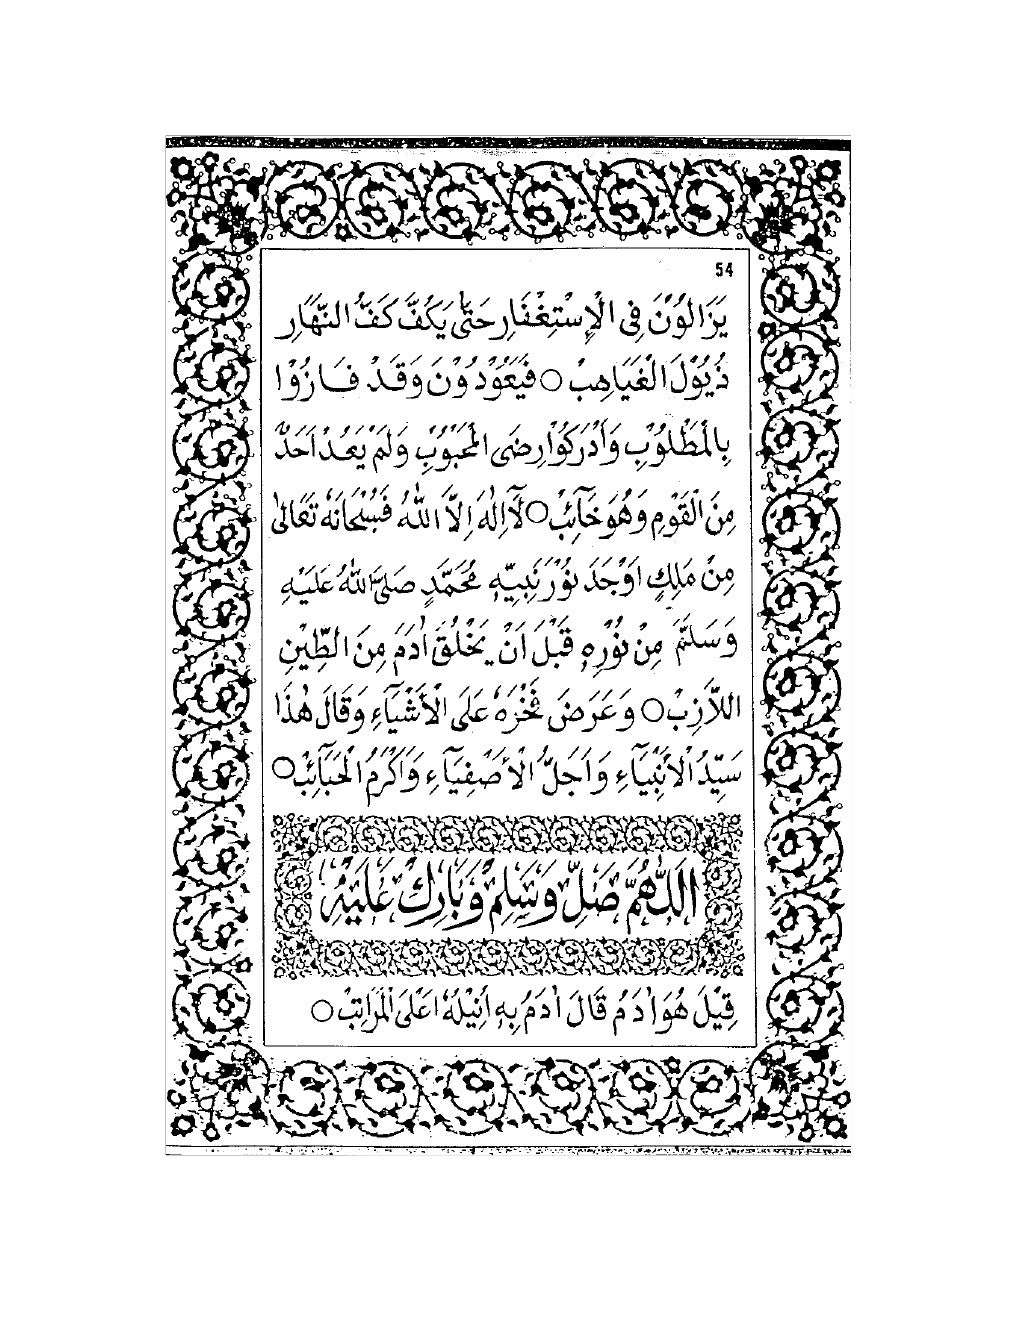 54
يَزَالُوْنَ فِى الْاِسْتِغْفَارِ حَتّٰى يَكُفَّ كَفُّ النَّهَارِ
ذُيُوْلَ الْغَيَاهِبْ ○ فَيَعُوْدُوْنَ وَقَدْ فَازُوْا
بِالْمَطْلُوْبِ وَاَدْرَكُوْا رِضَى الْمَحْبُوْبِ وَلَمْ يَعُدْ اَحَدٌ
مِنَ الْقَوْمِ وَهُوَ خَآئِبْ ○ لَآاِلٰهَ اِلَّا اللّٰهُ فَسُبْحَانَهٗ تَعَالٰى
مِنْ مَلِكٍ اَوْجَدَ نُوْرَ نَبِيِّهٖ مُحَمَّدٍ صَلَّى اللّٰهُ عَلَيْهِ
وَسَلَّمَ مِنْ نُوْرِهٖ قَبْلَ اَنْ يَخْلُقَ اٰدَمَ مِنَ الطِّيْنِ
اللَّازِبْ ○ وَعَرَضَ فَخْرَهٗ عَلَى الْاَشْيَآءِ وَقَالَ هٰذَا
سَيِّدُ الْاَنْبِيَآءِ وَاَجَلُّ الْاَصْفِيَآءِ وَاَكْرَمُ الْحَبَآئِبْ ○
اَللّٰهُمَّ صَلِّ وَسَلِّمْ وَبَارِكْ عَلَيْهِ
قِيْلَ هُوَ اٰدَمُ قَالَ اٰدَمُ بِهٖ اُنِيْلُهٗ اَعْلَى الْمَرَاتِبْ ○